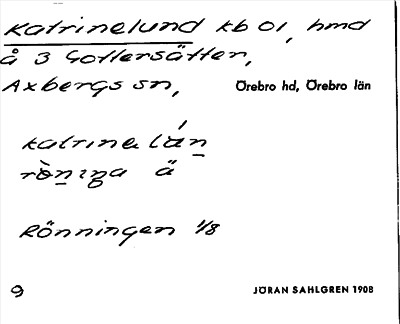 Katrinelund kb 01, hmd
å 3 Gottersätter,
Axbergs sn, Örebro hd, Örebro län
katrina lán
rò̀niga ä
Rönningen 1/8
9 JÖRAN SAHLGREN 1908